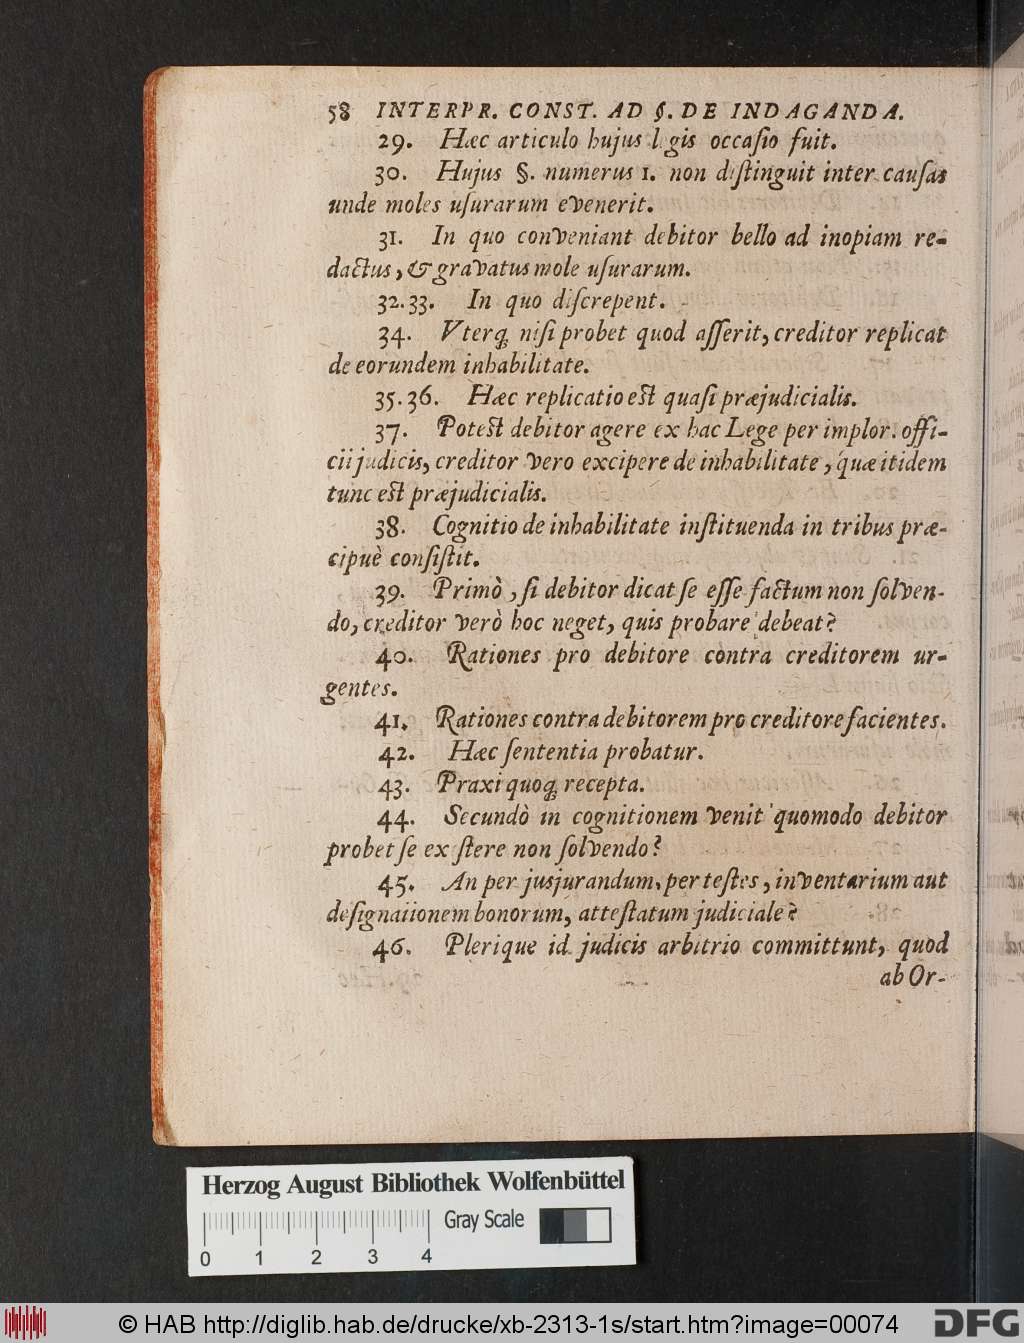 58 INTERPR. CONST. AD §. DE INDAGANDA.
29. Hæc articulo hujus l gis occaſio fuit.
30. Hujus §. numerus 1. non diſtinguit inter cauſas
unde moles uſurarum evenerit.
31. In quo conveniant debitor bello ad inopiam re-
dactus, & gravatus mole uſurarum.
32. 33. In quo diſcrepent.
34. Vterq; niſi probet quod aſſerit, creditor replicat
de eorundem inhabilitate.
35. 36. Hæc replicatio eſt quaſi præjudicialis.
37. Poteſt debitor agere ex hac Lege per implor. offi-
cii judicis, creditor vero excipere de inhabilitate, quæ itidem
tunc eſt præjudicialis.
38. Cognitio de inhabilitate inſtituenda in tribus præ-
cipuè conſiſtit.
39. Primò, ſi debitor dicat ſe eſſe factum non ſolven-
do, creditor verò hoc neget, quis probare debeat?
40. Rationes pro debitore contra creditorem ur-
gentes.
41. Rationes contra debitorem pro creditore facientes.
42. Hæc ſententia probatur.
43. Praxi quoq; recepta.
44. Secundò in cognitionem venit quomodo debitor
probet ſe exſtere non ſolvendo?
45. An per jusjurandum, per teſtes, inventarium aut
deſignationem bonorum, atteſtatum judiciale?
46. Plerique id judicis arbitrio committunt, quod
ab Or-
Herzog August Bibliothek Wolfenbüttel
Gray Scale
0 1 2 3 4
© HAB http://diglib.hab.de/drucke/xb-2313-1s/start.htm?image=00074
DFG